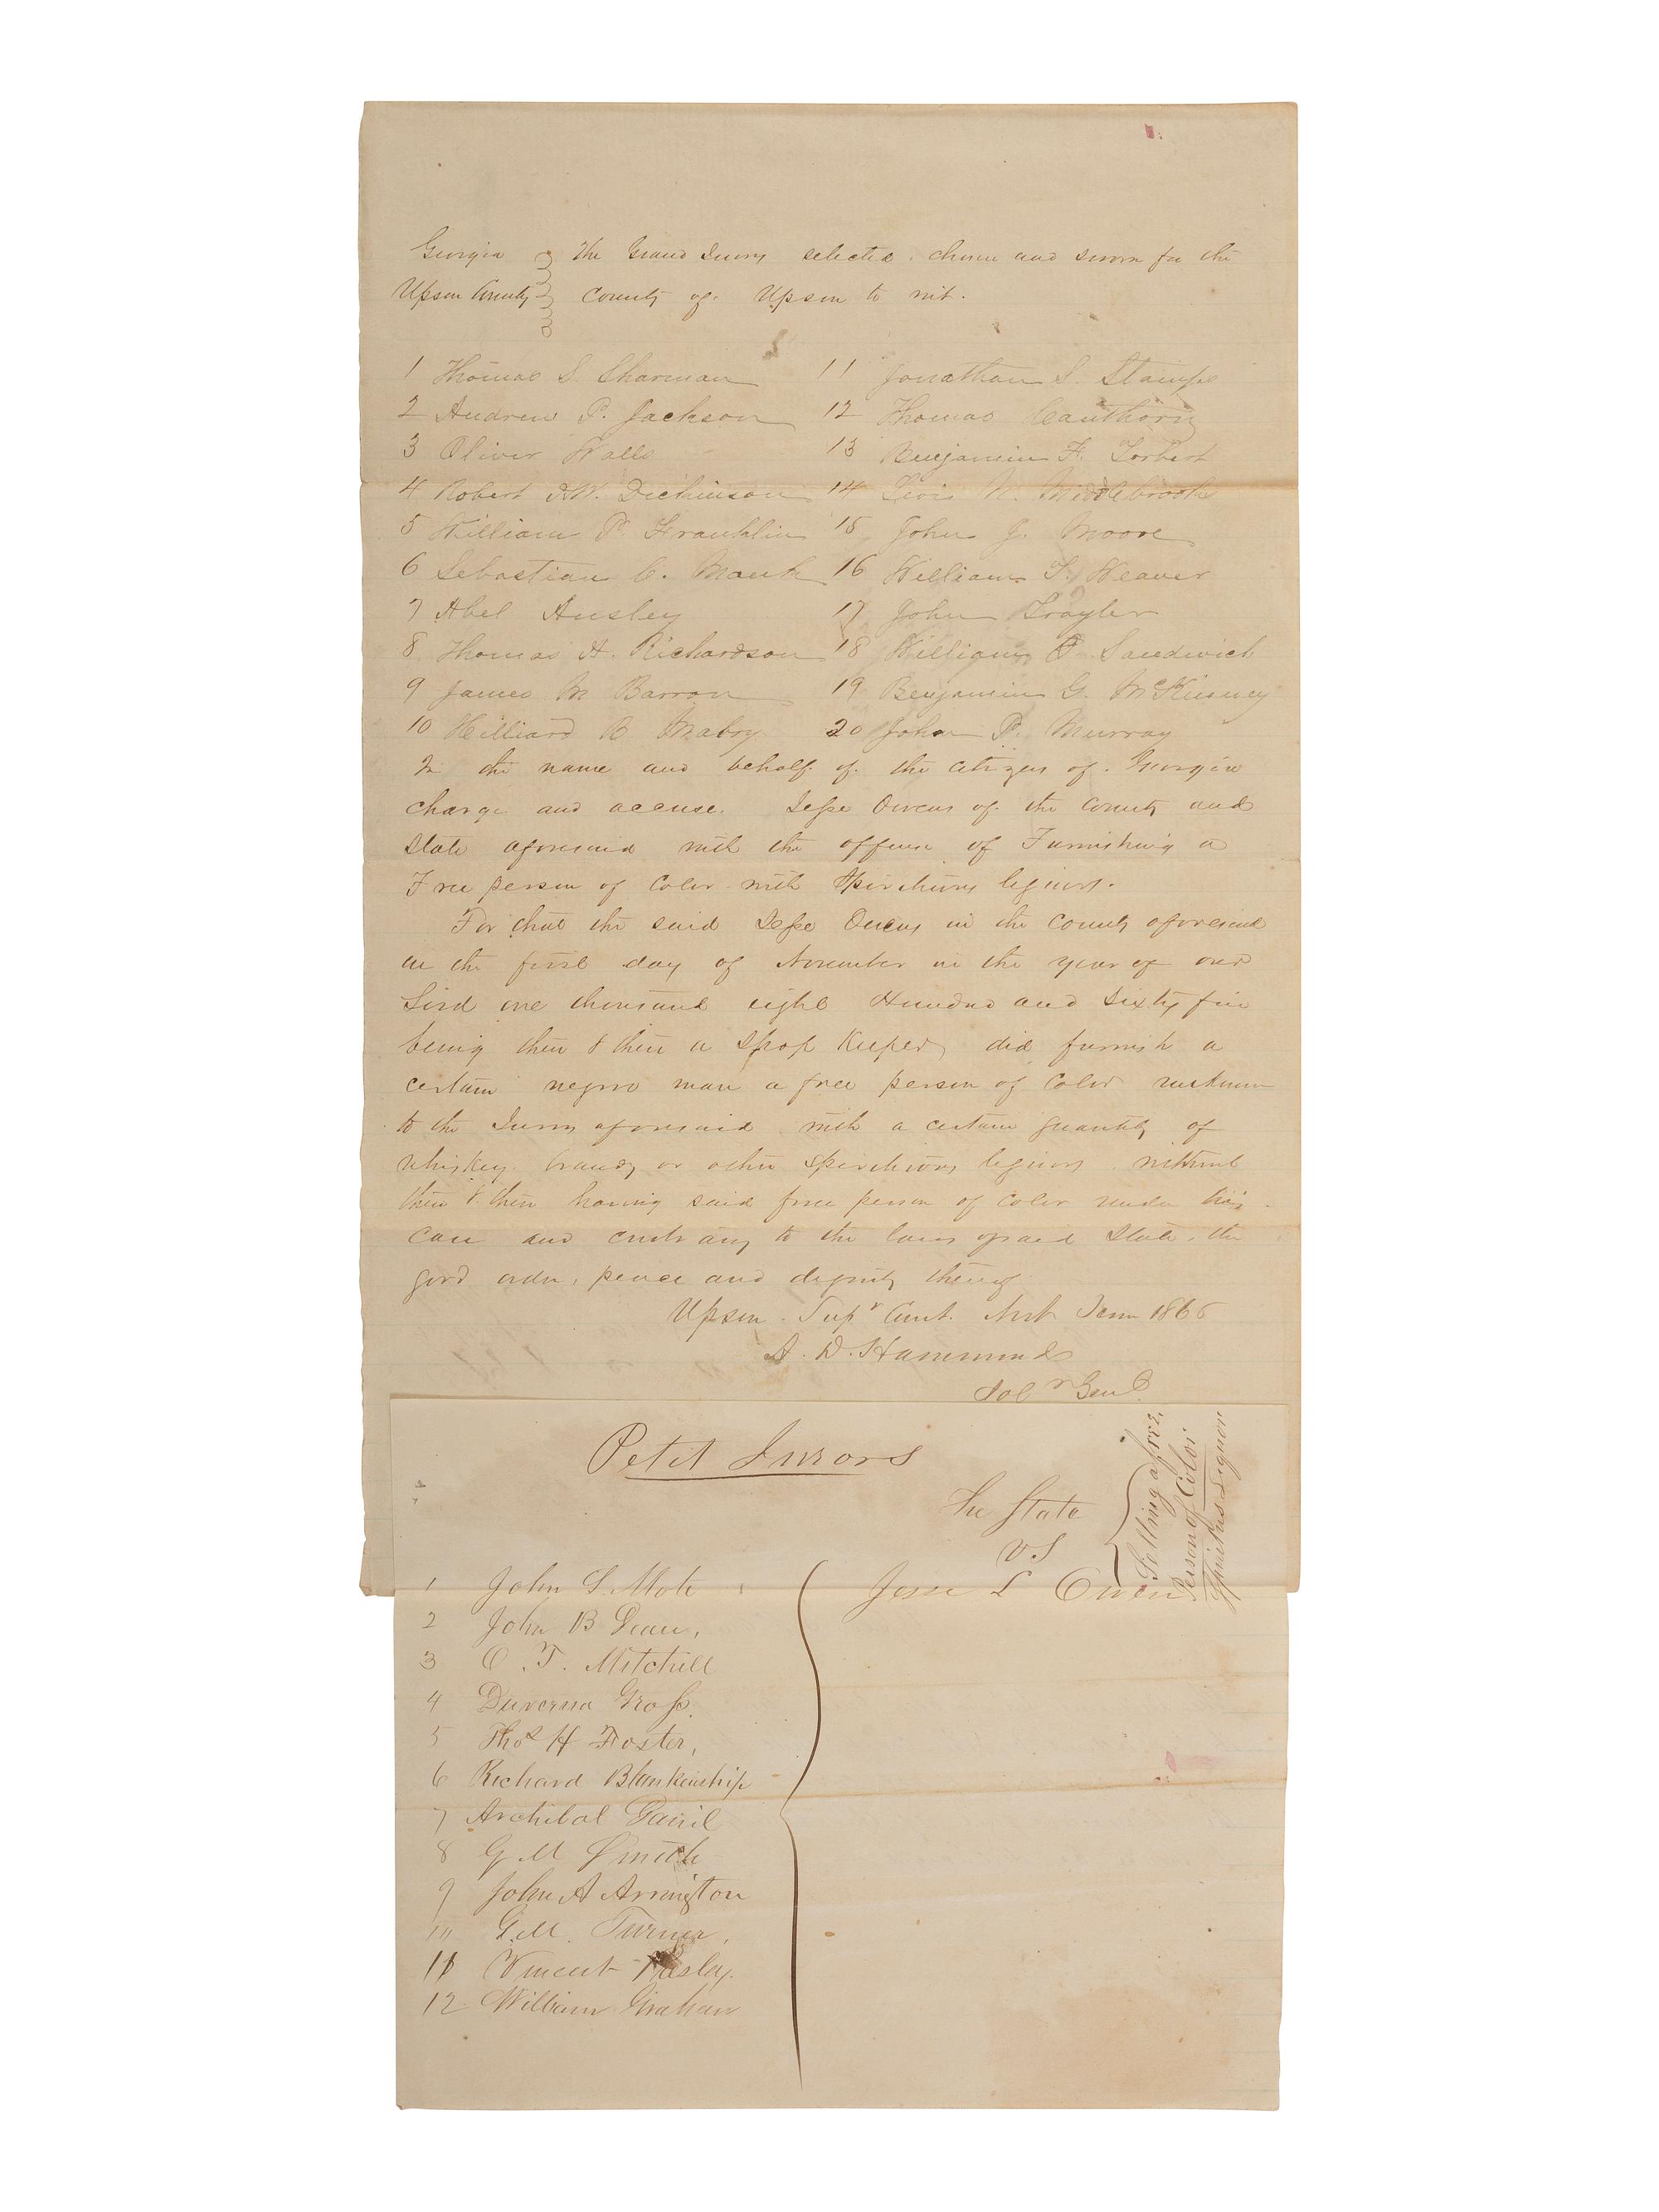 Georgia The Grand Jurors selected, chosen and sworn for the
Upson County County of Upson to wit.
1 Thomas S. Sharman
2 Andrew P. Jackson
3 Oliver Walls
4 Robert W. Dickinson
5 William P. Franklin
6 Sebastian C. Mauk
7 Abel Ansley
8 Thomas H. Richardson
9 James M Barron
10 Hilliard R Mabry
11 Jonathan S. Stamps
12 Thomas Cauthorn
13 Benjamin F. Torbert
14 Levi N. Middlebrook
15 John J. Moore
16 William T. Weaver
17 John Traylor
18 William O Sandwich
19 Benjamin G. McKinney
20 John P. Murray
In the name and behalf of the citizens of Georgia
charge and accuse Jesse Owens of the County and
State aforesaid with the offence of Furnishing a
Free person of Color with Spirituous liquors.
For that the said Jesse Owens in the County aforesaid
on the first day of November in the year of our
Lord one thousand eight Hundred and sixty five
being then & there a Shop Keeper did furnish a
certain negro man a free person of Color unknown
to the Jurors aforesaid with a certain quantity of
whiskey brandy or other spirituous liquors without
then & there having said free person of color under his
care and contrary to the laws of said State, the
good order, peace and dignity thereof
Upson Supr Court. Term 1866
A. D. Hammond
Solr Genl
Petit Jurors
The State
vs
Jesse L Owen
Selling a free
Person of Color
Spiritus Liquor
1 John S. Mote
2 John B Dean,
3 O. T. Mitchell
4 Duverna Gross.
5 Thos H Foster,
6 Richard Blankenship
7 Archibal Daniel
8 G M Smith
9 John A Arrington
10 G. M. Turner,
11 Vincent
12 William Graham